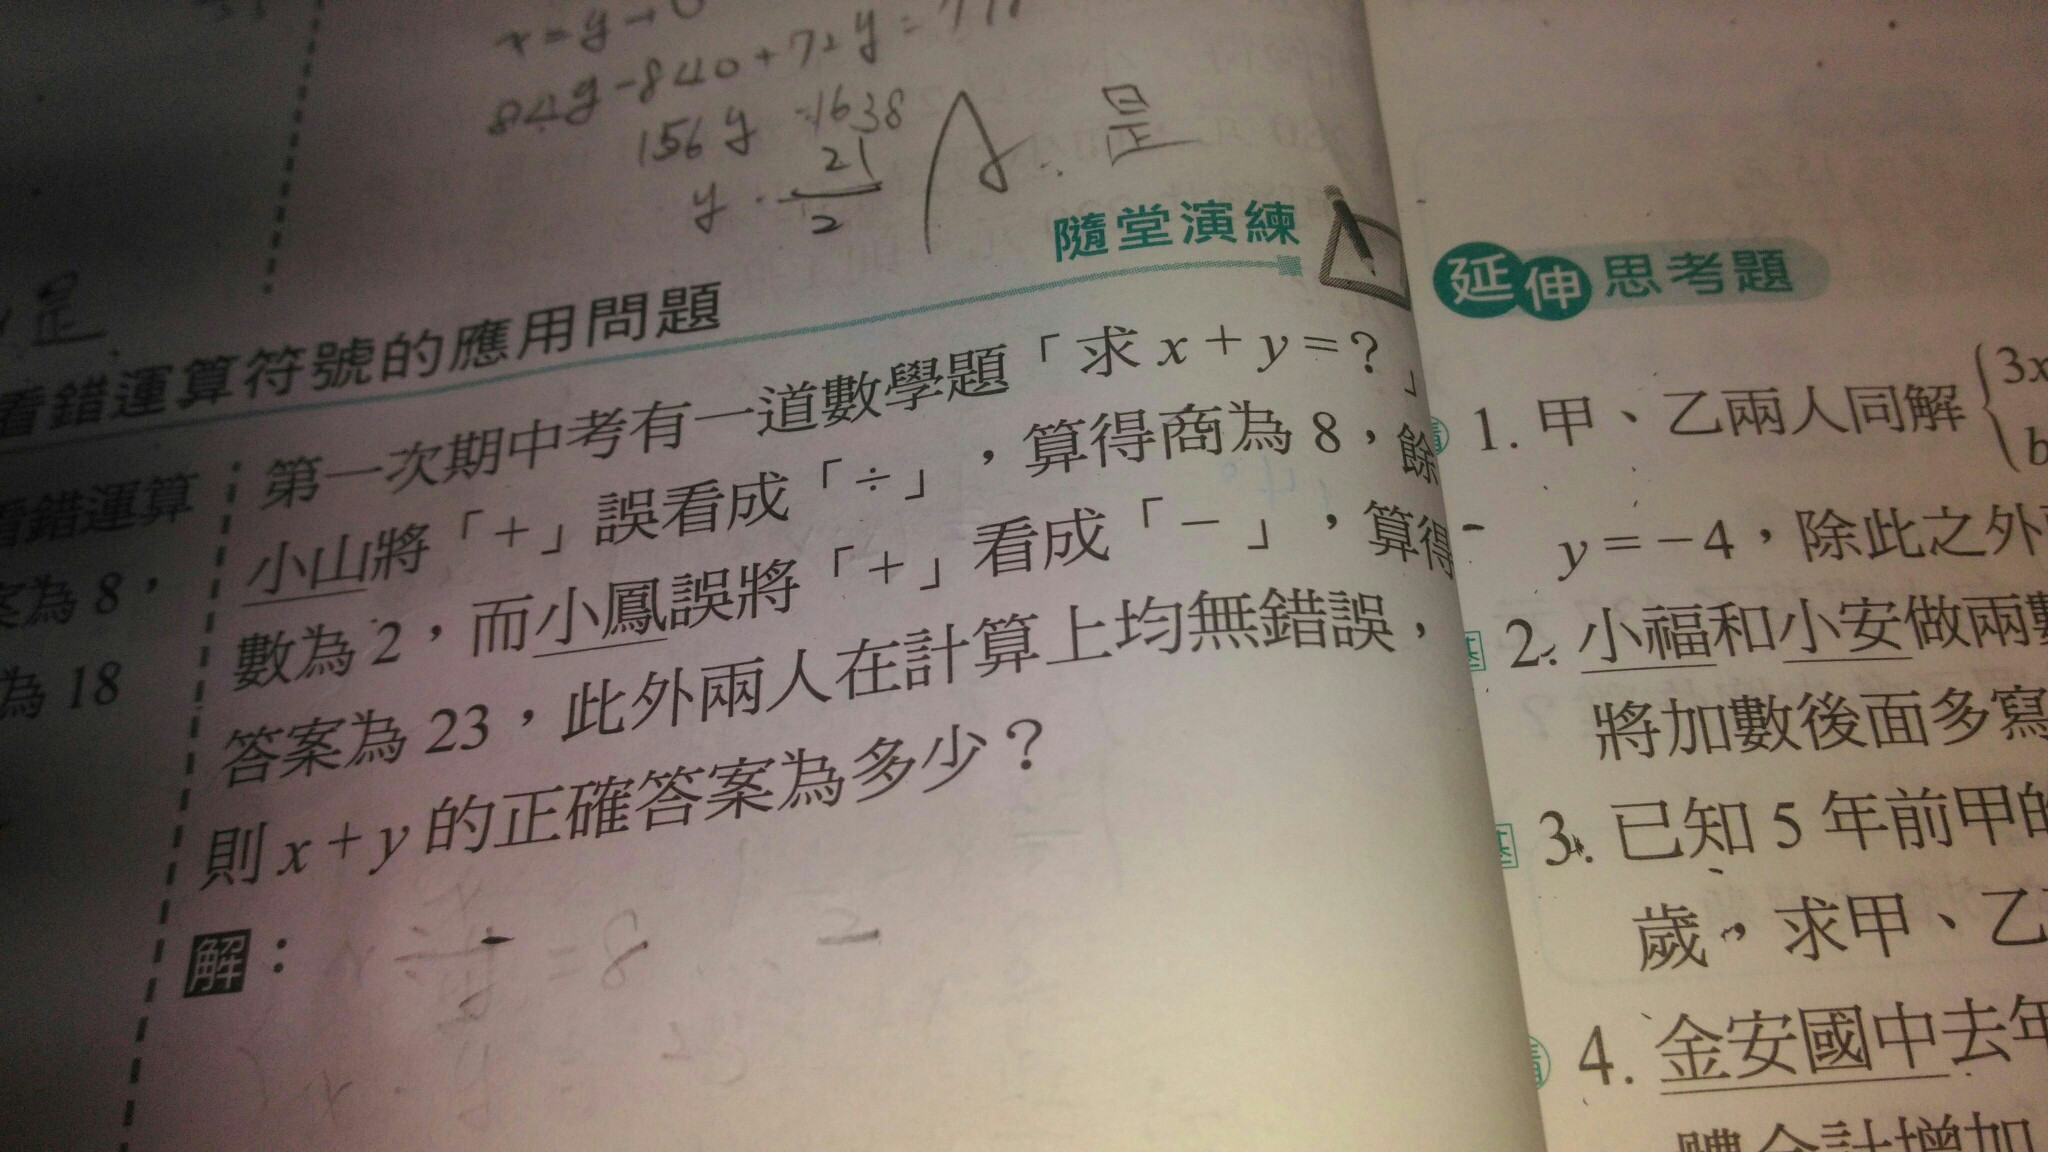 84y-840+72y=
156y=1638
y=21/2
A:是
隨堂演練
看錯運算符號的應用問題
第一次期中考有一道數學題「求x+y=?」
小山將「+」誤看成「÷」,算得商為8,餘
數為2,而小鳳誤將「+」看成「-」,算得
答案為23,此外兩人在計算上均無錯誤,
則x+y的正確答案為多少?
解:
是
看錯運算
案為8,
為18
延伸思考題
1. 甲、乙兩人同解{3x
b
y=-4,除此之外
2. 小福和小安做兩數
將加數後面多寫
3. 已知5年前甲的
歲,求甲、乙
4. 金安國中去年
體合計增加